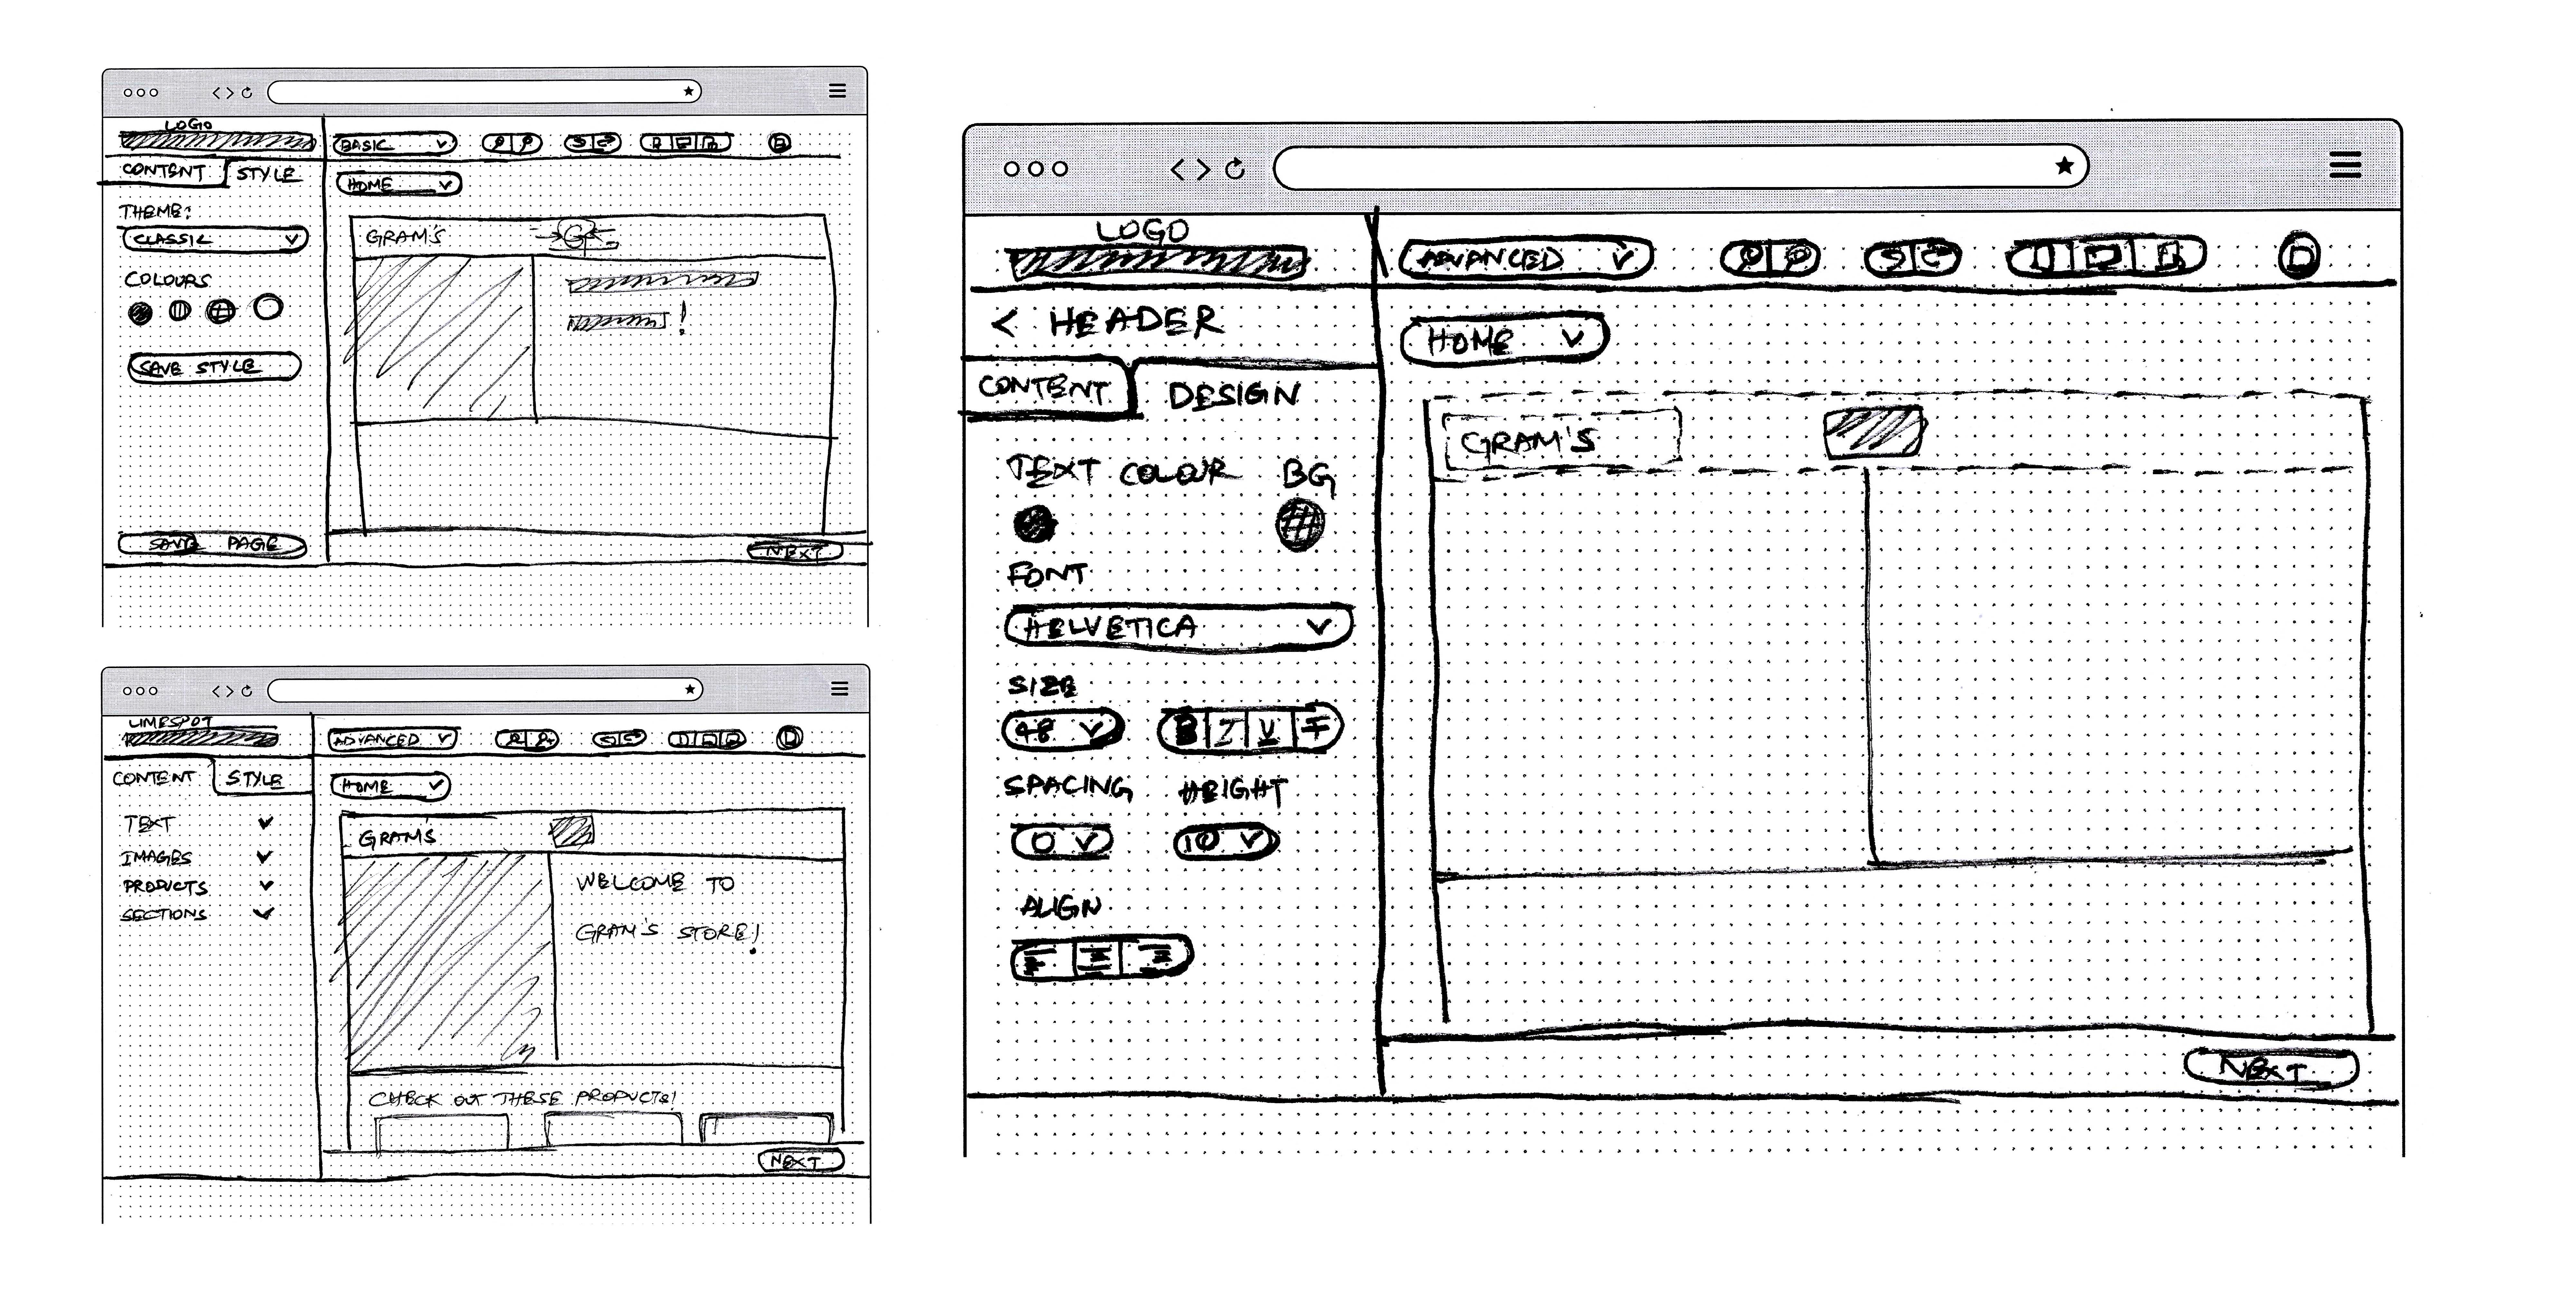 LOGO
BASIC
CONTENT STYLE
HOME
THEME:
CLASSIC
GRAM'S
COLOURS
!
SAVE STYLE
SAVE PAGE
NEXT
LIMESPOT
ADVANCED
CONTENT STYLE
HOME
TEXT
IMAGES
PRODUCTS
SECTIONS
GRAM'S
WELCOME TO
GRAM'S STORE!
CHECK OUT THESE PRODUCTS!
NEXT
LOGO
ADVANCED
< HEADER
HOME
CONTENT DESIGN
GRAM'S
TEXT COLOUR BG
FONT
HELVETICA
SIZE
48 B I U T
SPACING HEIGHT
0 10
ALIGN
NEXT